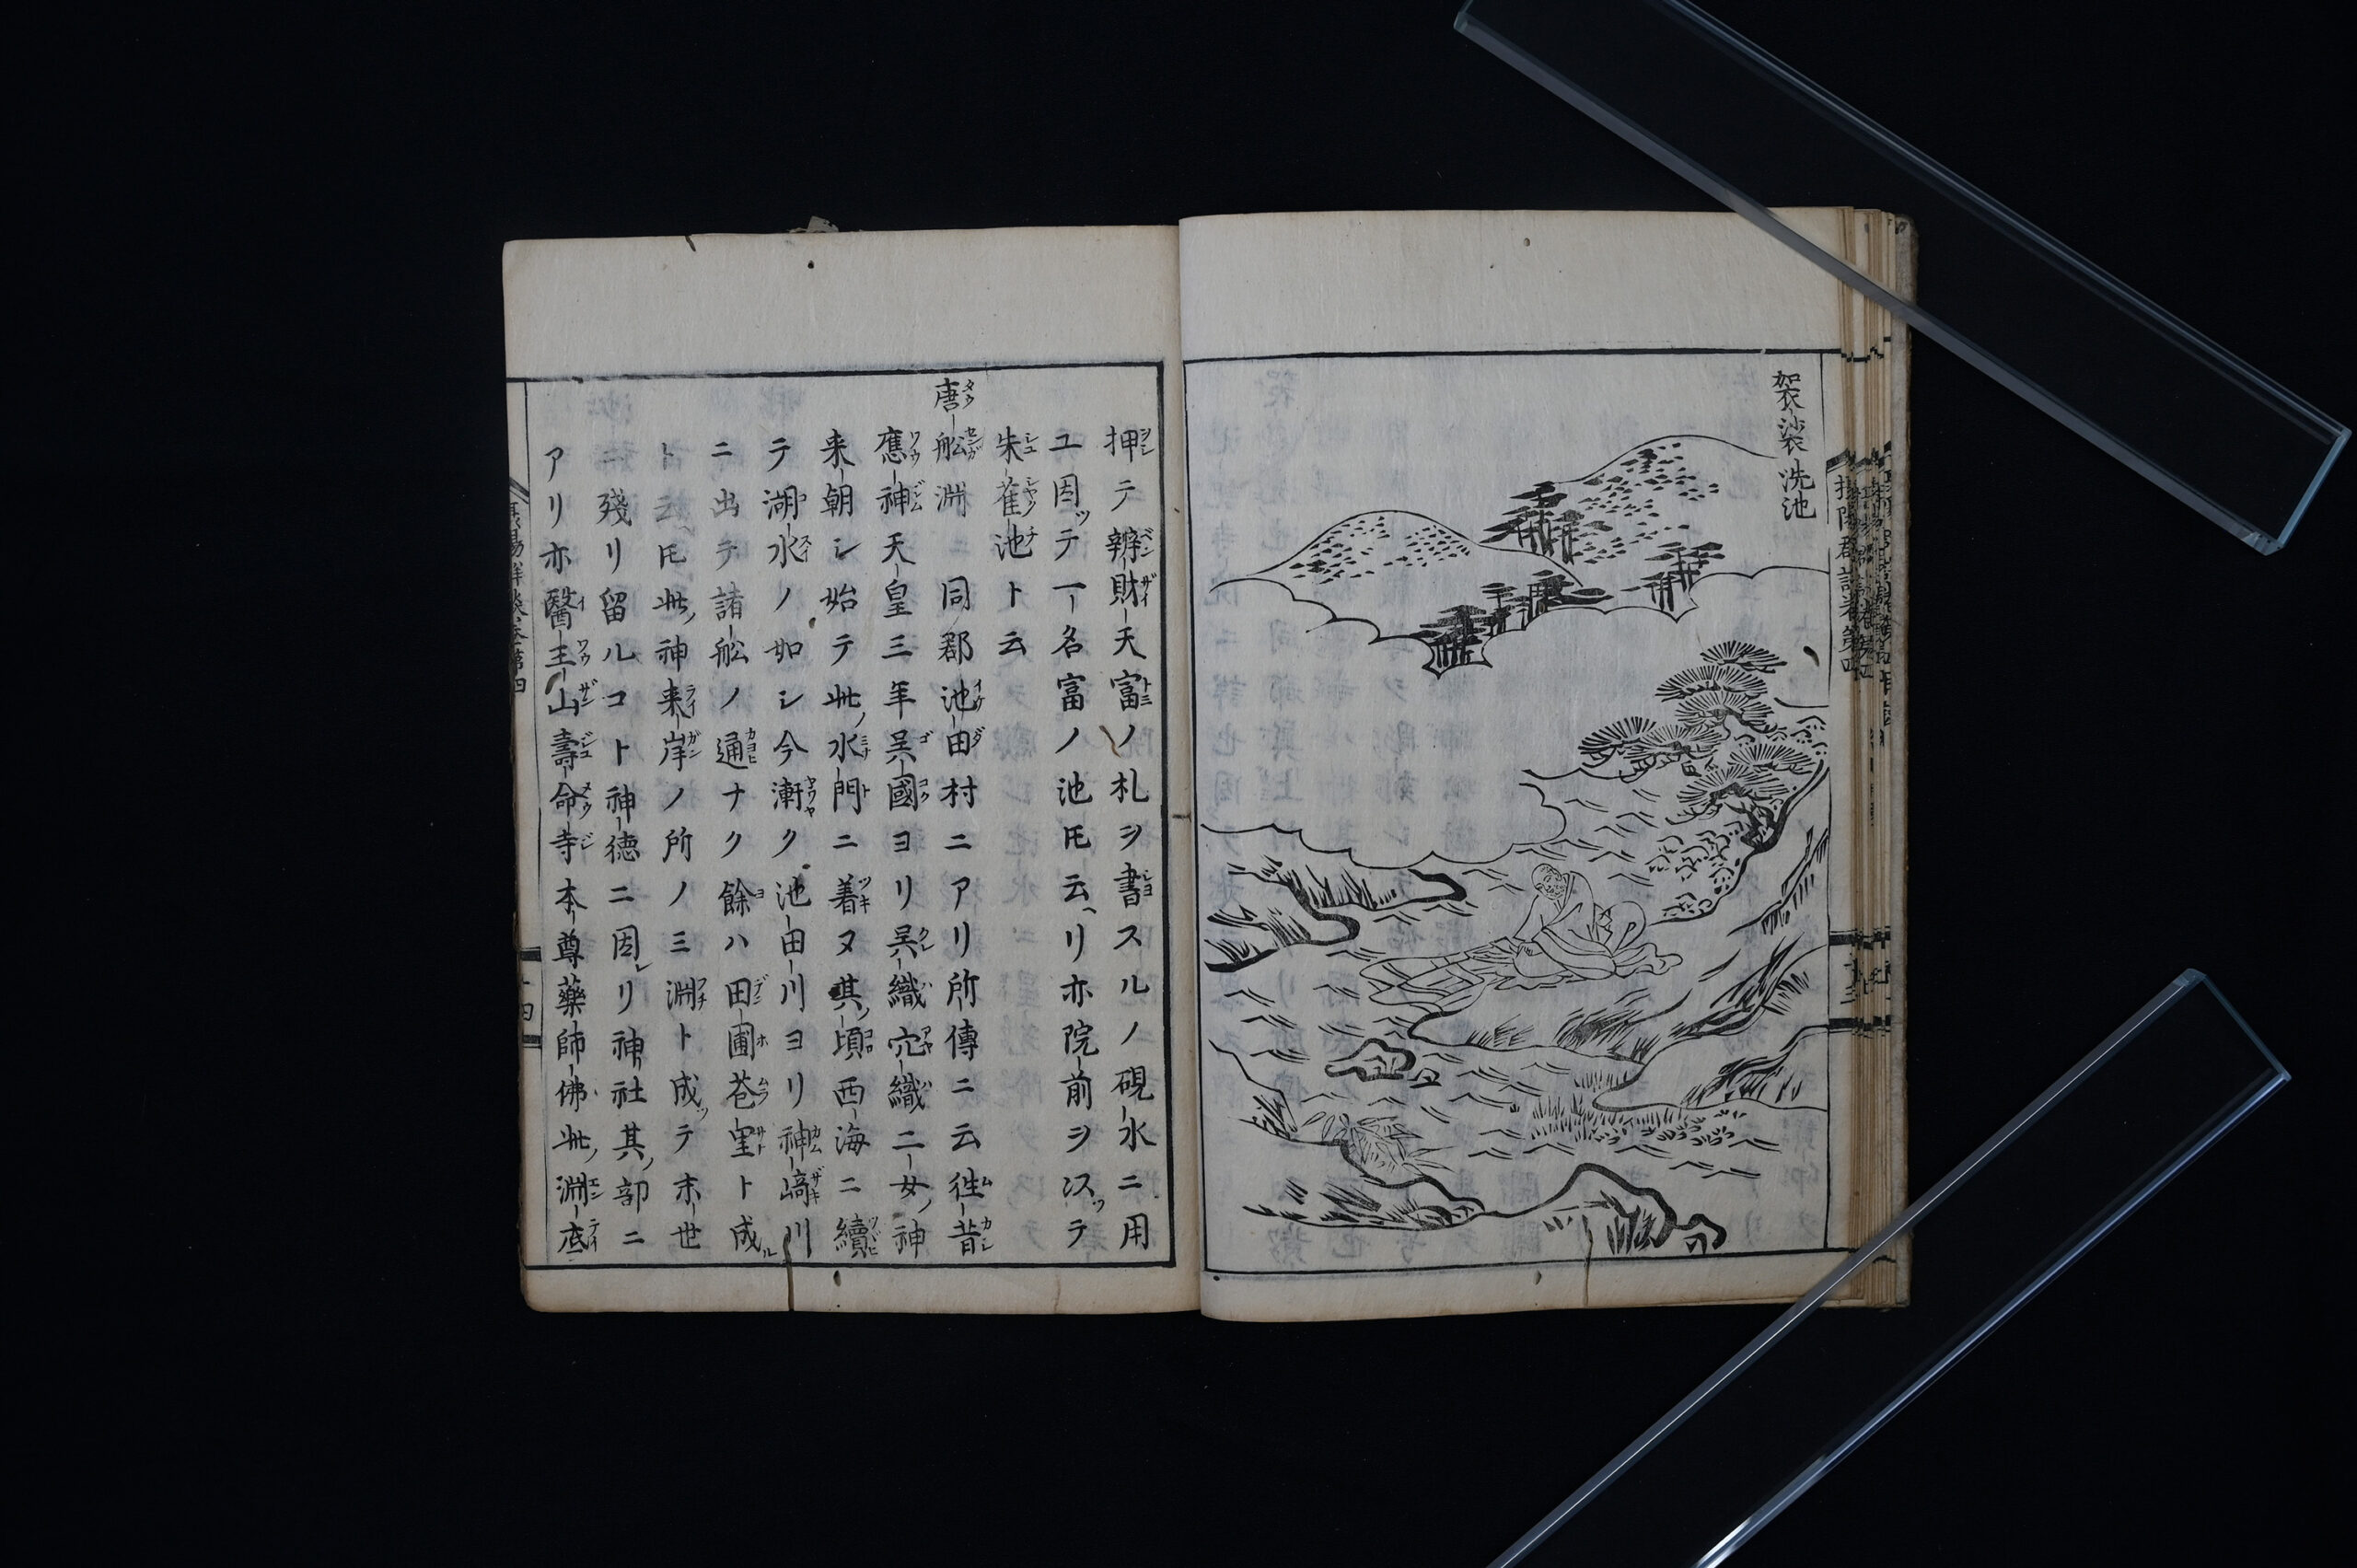 袈裟洗池
押テ辨財天富ノ札ヲ書スルノ硯水ニ用
ユ因ッテ一名富ノ池氏云ヘリ亦院前ヲ以ッテ
朱雀池ト云
唐船淵 同郡池田村ニアリ所傳ニ云徃昔
應神天皇三年呉國ヨリ呉織穴織二女ノ神
来朝シ始テ此ノ水門ニ着ヌ其ノ頃西海ニ續
テ湖水ノ如シ今漸ク池田川ヨリ神﨑川
ニ出テ諸舩ノ通ナク餘ハ田圃苍里ト成ル
ト云ヘ𪜈此ノ神来岸ノ所ノミ淵ト成ッテ末世
ニ殘リ留ルコト神徳ニ因レリ神社其ノ部ニ
アリ亦醫王山壽命寺本尊藥師佛ハ此ノ淵底